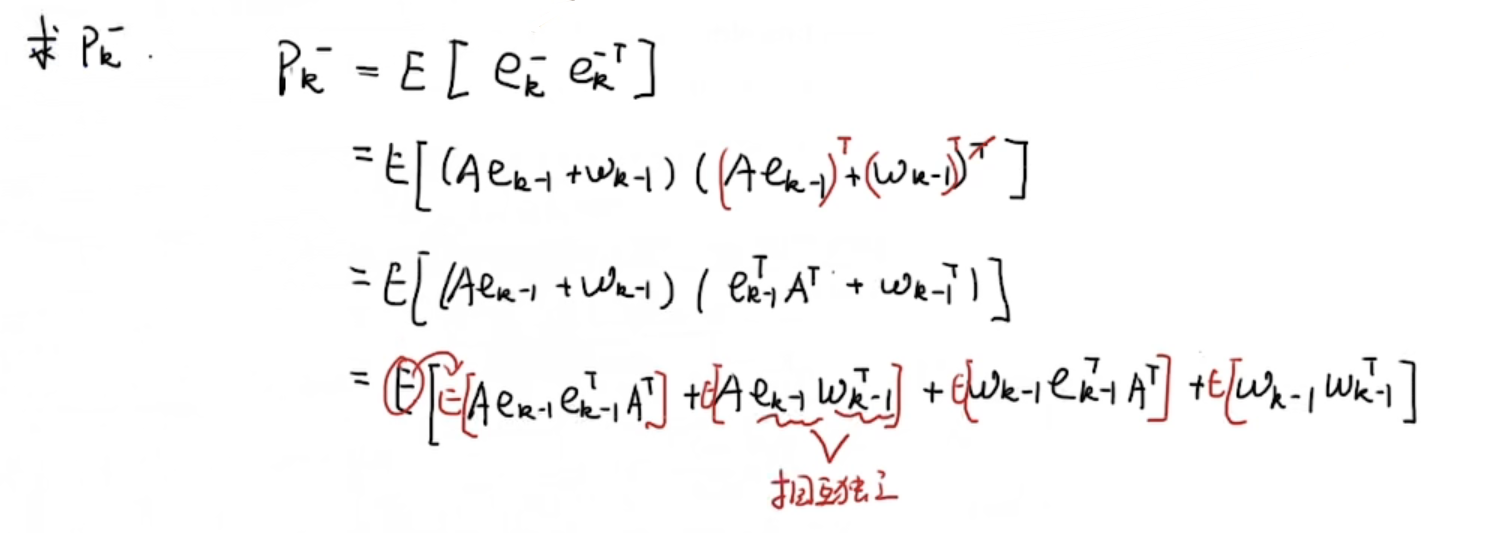 求 P_k^- . P_k^- = E [ e_k^- e_k^{-T} ]
= E[ (A e_{k-1} + w_{k-1}) ( (A e_{k-1})^T + (w_{k-1})^T )^T ]
= E[ (A e_{k-1} + w_{k-1}) ( e_{k-1}^T A^T + w_{k-1}^T ) ]
= E[ E[A e_{k-1} e_{k-1}^T A^T] + E[A e_{k-1} w_{k-1}^T] + E[w_{k-1} e_{k-1}^T A^T] + E[w_{k-1} w_{k-1}^T]
相互独立